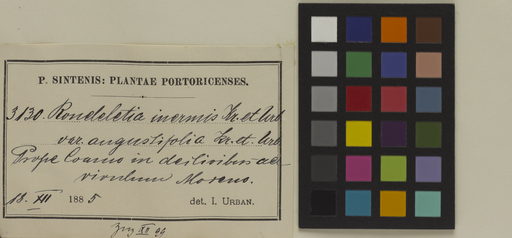 P. SINTENIS: PLANTAE PORTORICENSES.
3130. Rondeletia inermis Kr. et Urb
var. angustifolia Kr. et. Urb
Prope Coamo in declivibus ad
rivulum Moreno.
18. XII 1885 det. I. URBAN.